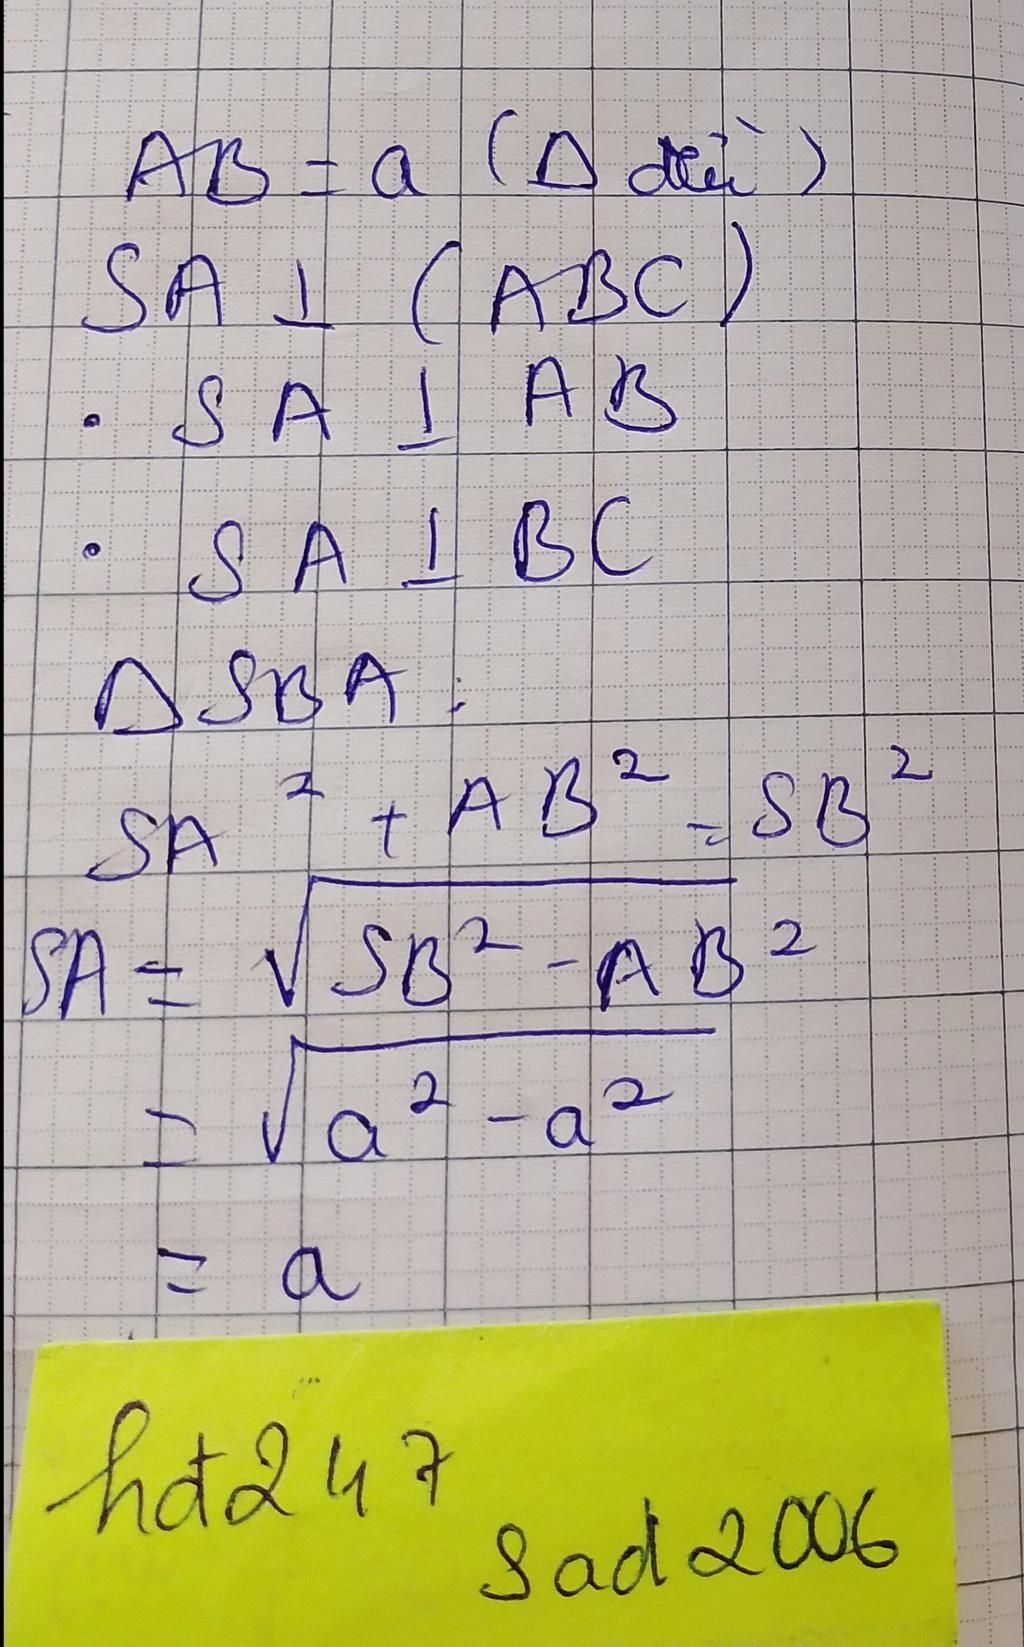 AB = a (Δ đều)
SA ⊥ (ABC)
• SA ⊥ AB
• SA ⊥ BC
Δ SBA :
SA² + AB² = SB²
SA = √(SB² - AB²)
= √(a² - a²)
= a
hđ247
Sad2006